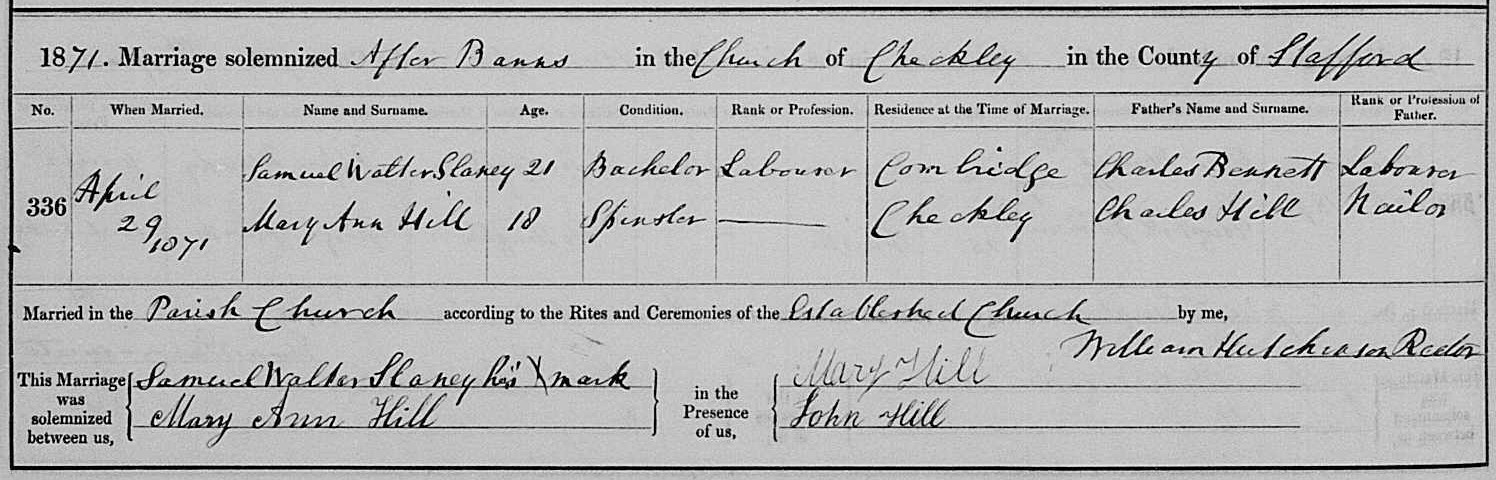 1871. Marriage solemnized After Banns in the Church of Checkley in the County of Stafford
No. When Married. Name and Surname. Age. Condition. Rank or Profession. Residence at the Time of Marriage. Father's Name and Surname. Rank or Profession of Father.
336 April 29 1871 Samuel Walter Slaney 21 Bachelor Labourer Combridge Charles Bennett Labourer
Mary Ann Hill 18 Spinster — Checkley Charles Hill Nailor
Married in the Parish Church according to the Rites and Ceremonies of the Established Church by me,
William Hutchinson Rector
This Marriage was solemnized between us, Samuel Walter Slaney his X mark in the Presence of us, Mary Hill
Mary Ann Hill John Hill